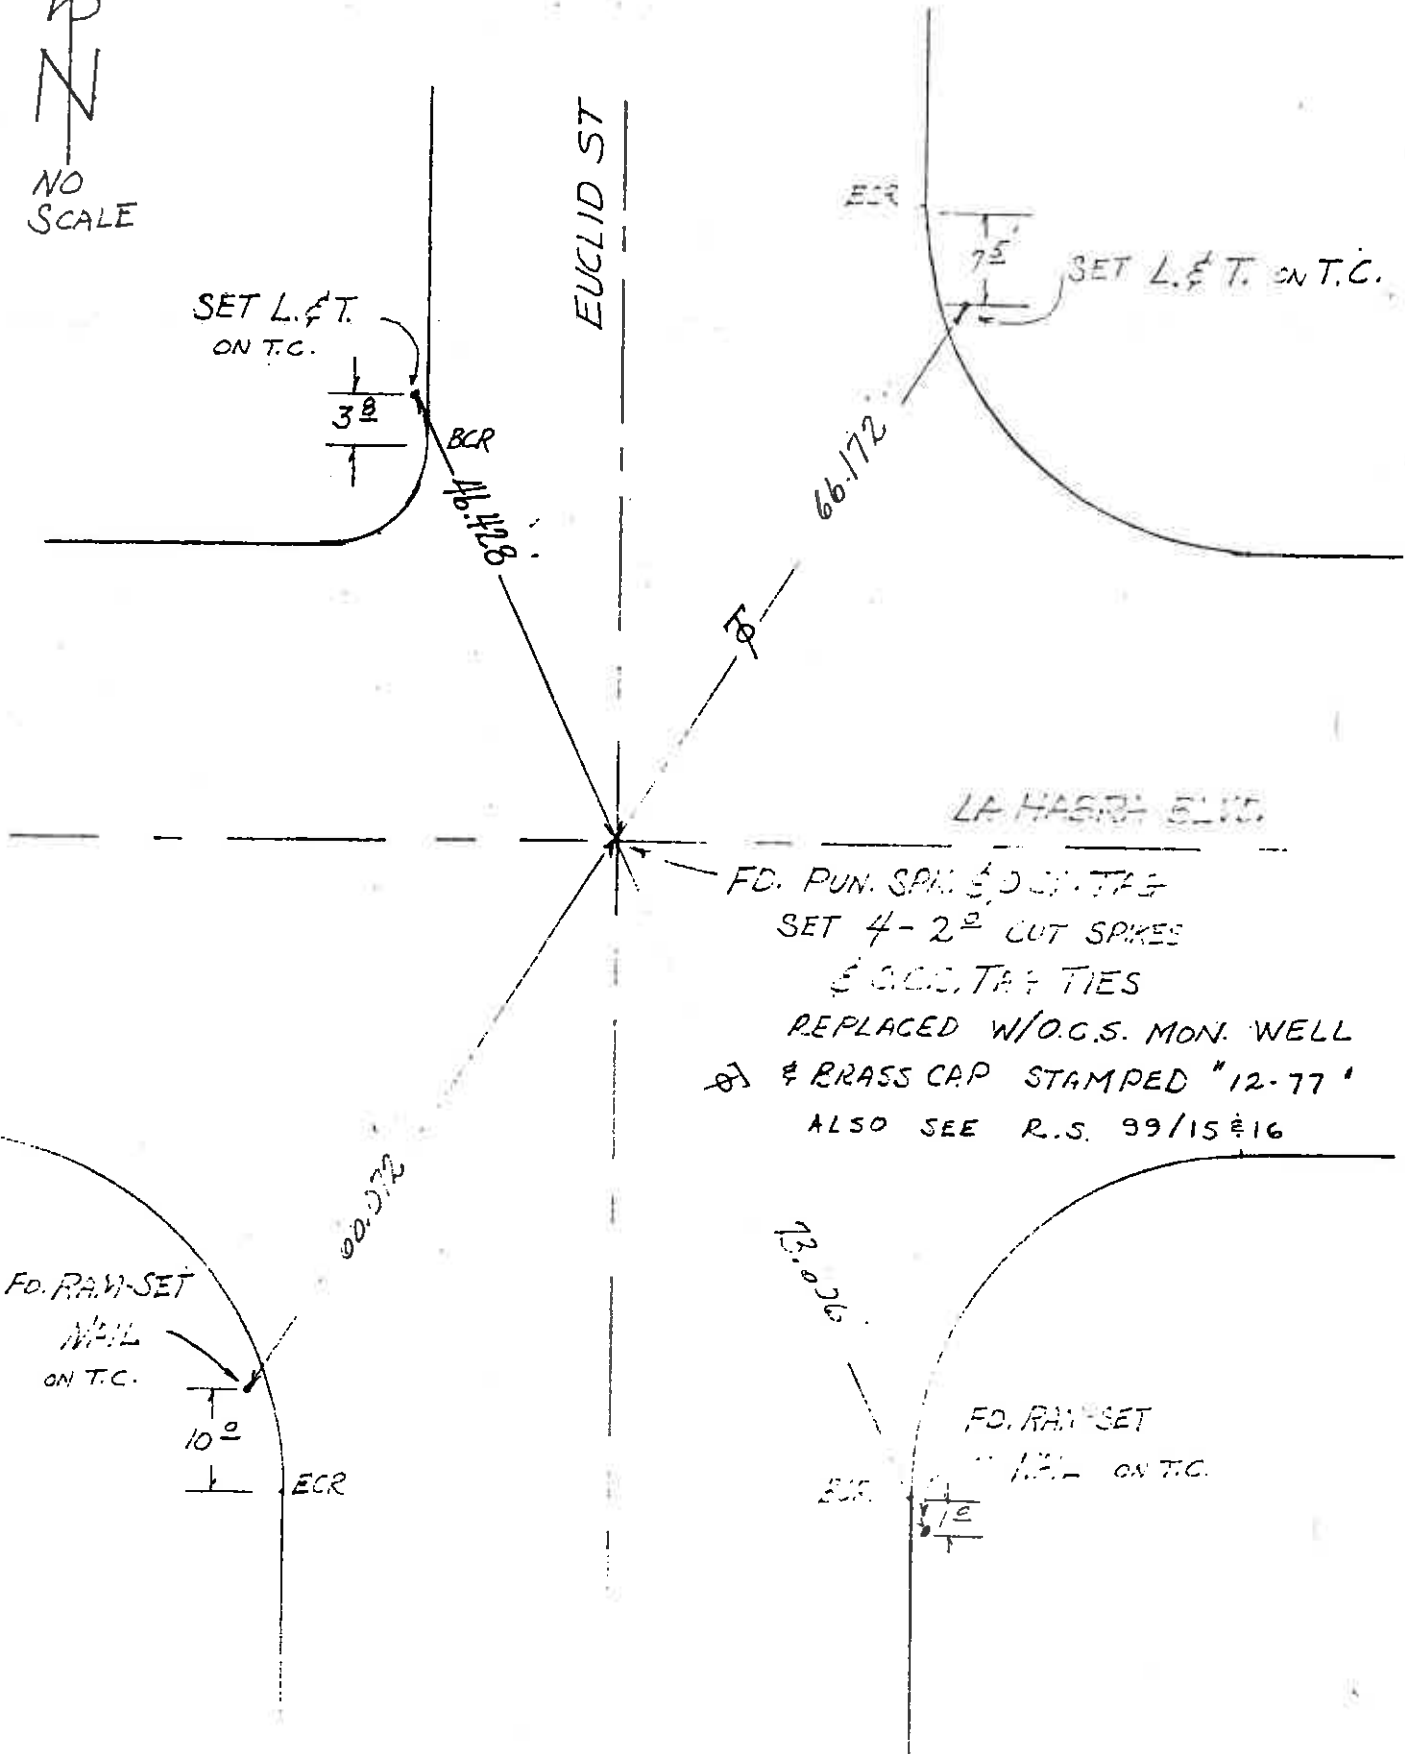 N
NO
SCALE
EUCLID ST
SET L. & T.
ON T.C.
3 8
BCR
46.428
ECR
7 5
SET L. & T. ON T.C.
66.172
LA HABRA BLVD.
FD. PUN. SPK. & TAG
SET 4 - 2 0 CUT SPIKES
& TAG TIES
REPLACED W/O.C.S. MON. WELL
& BRASS CAP STAMPED "12-77"
ALSO SEE R.S. 99/15 & 16
FD. RAM-SET
NAIL
ON T.C.
10 0
ECR
73.036
FD. RAM-SET
NAIL ON T.C.
BCR
1 0